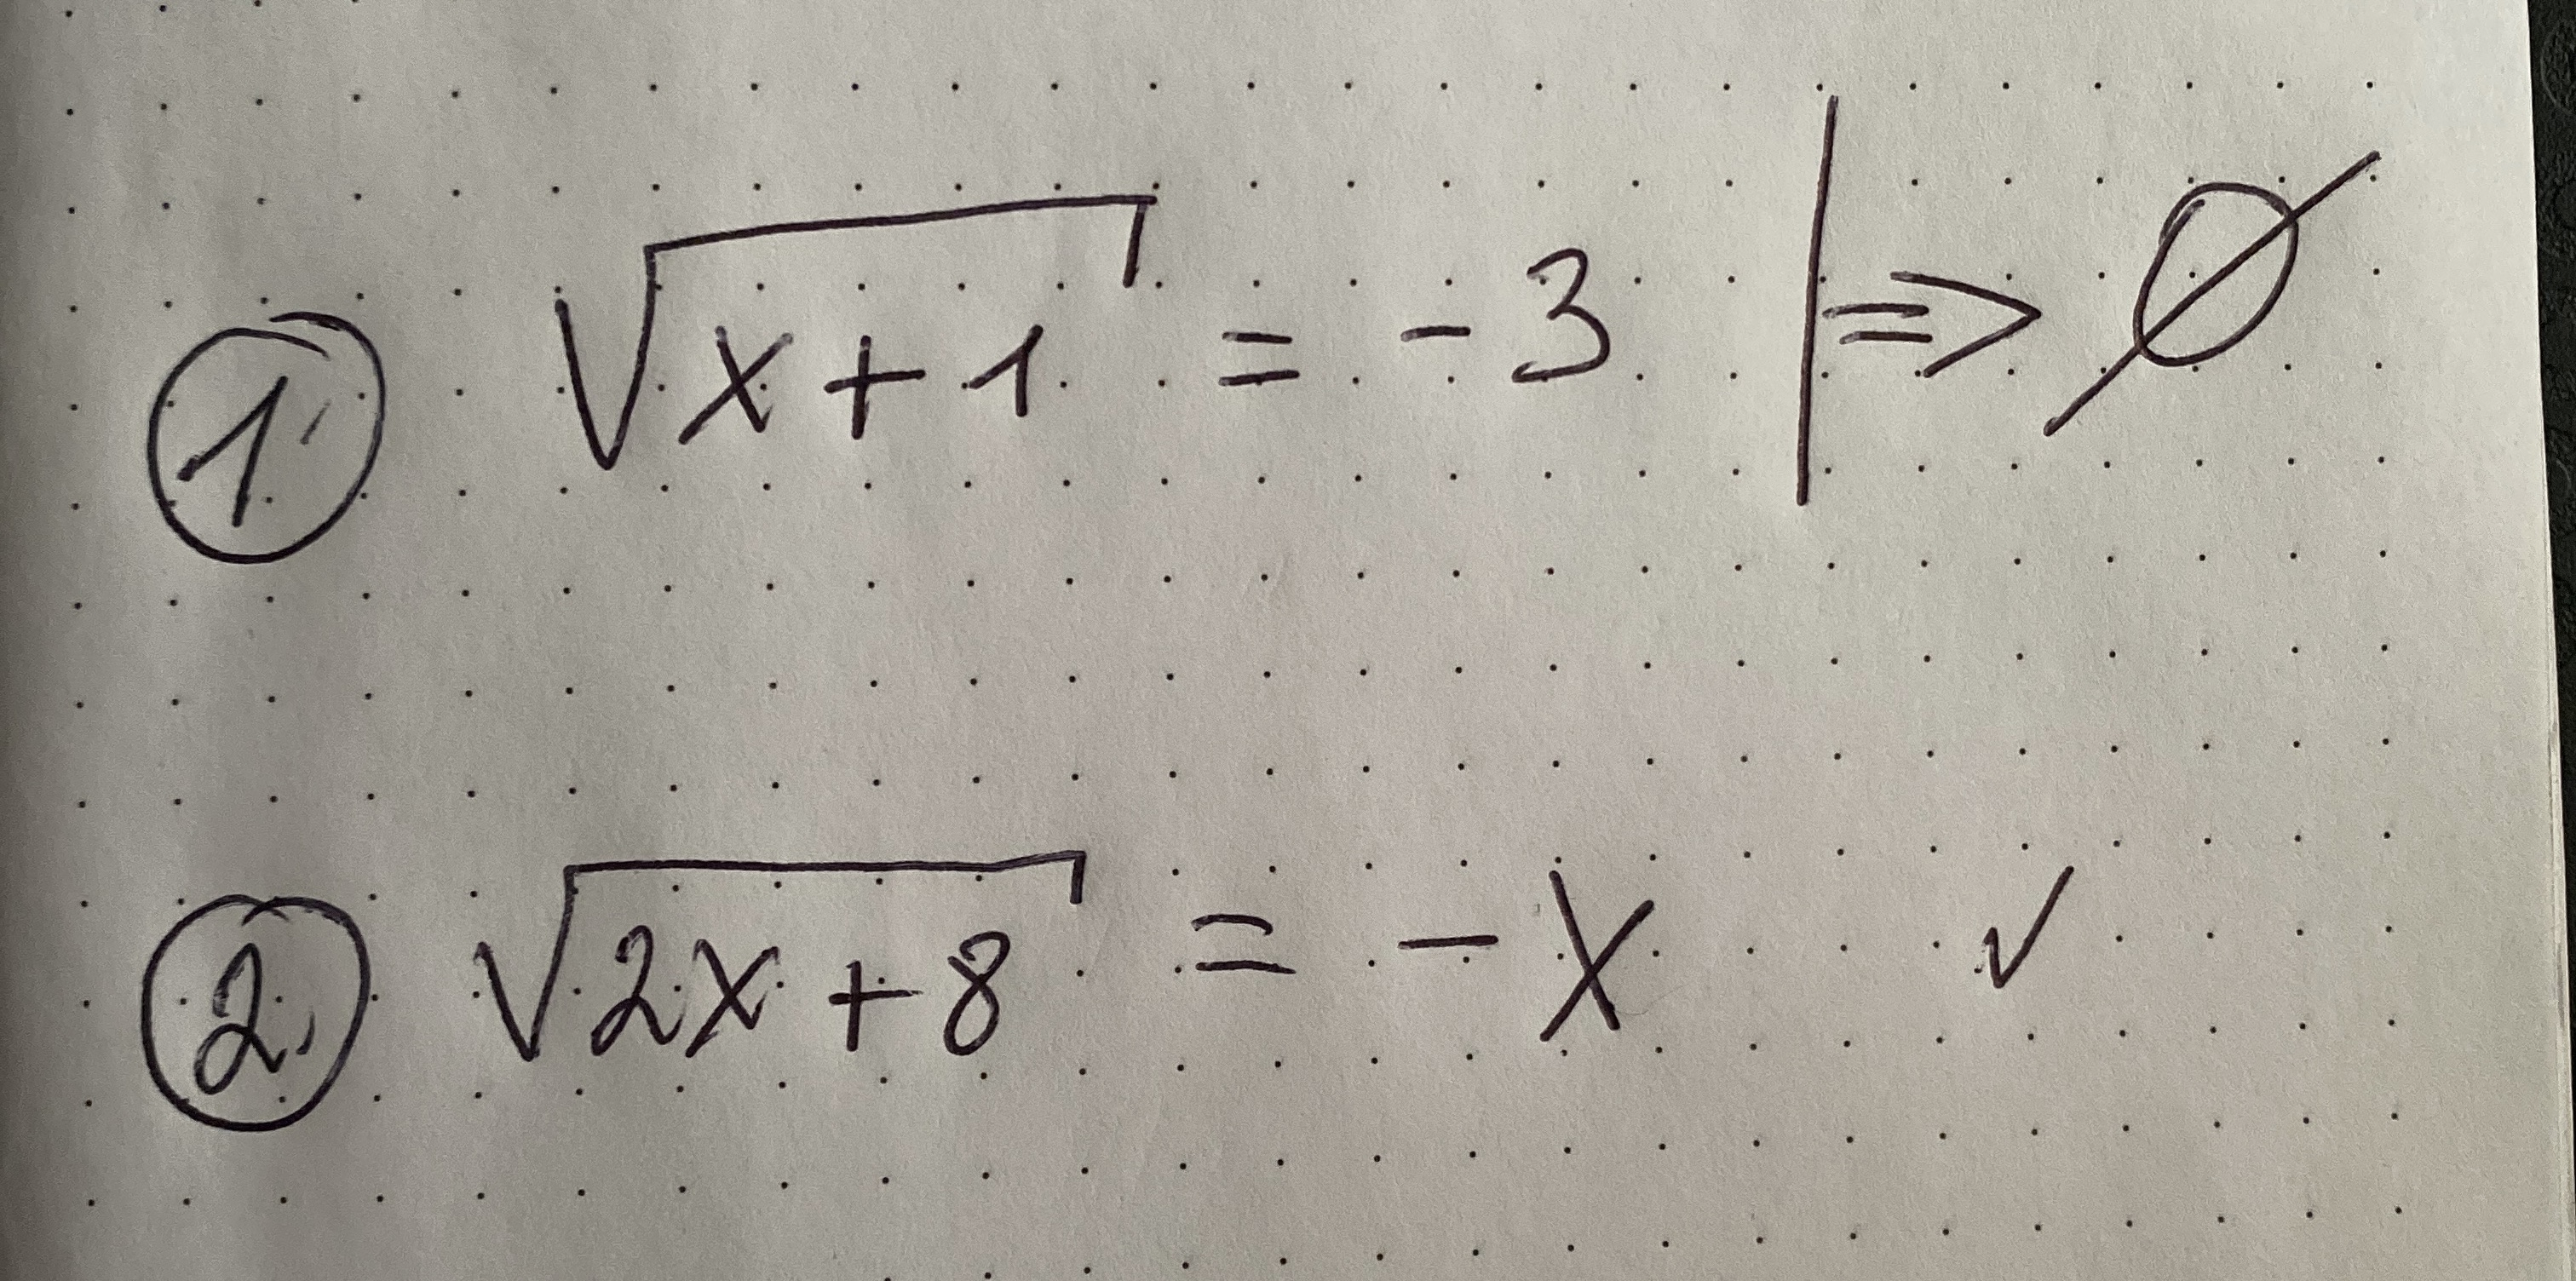 ① √(x+1) = -3 | => ∅
② √(2x+8) = -x ✓